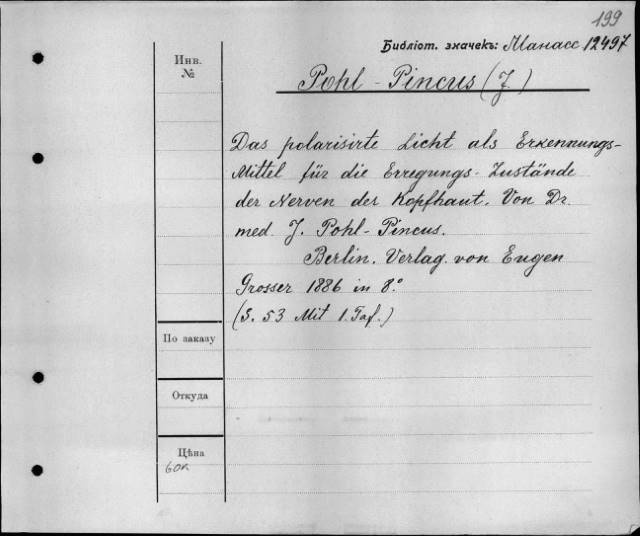 199
Библіот. значекъ: Манасс 12497
Инв.
№
Pohl-Pincus (J.)
Das polarisirte Licht als Erkennungs-
Mittel für die Erregungs-Zustände
der Nerven der Kopfhaut. Von Dr.
med. J. Pohl-Pincus.
Berlin. Verlag von Eugen
Grosser 1886 in 8.°
(S. 53 Mit 1. Taf.)
По заказу
Откуда
Цѣна
60к